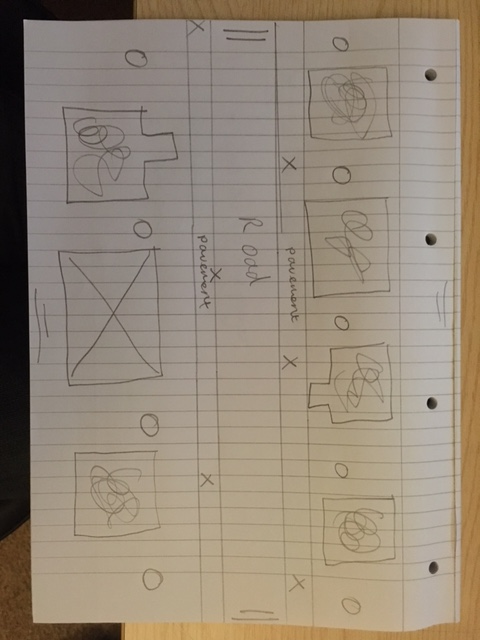 pavement
Road
pavement